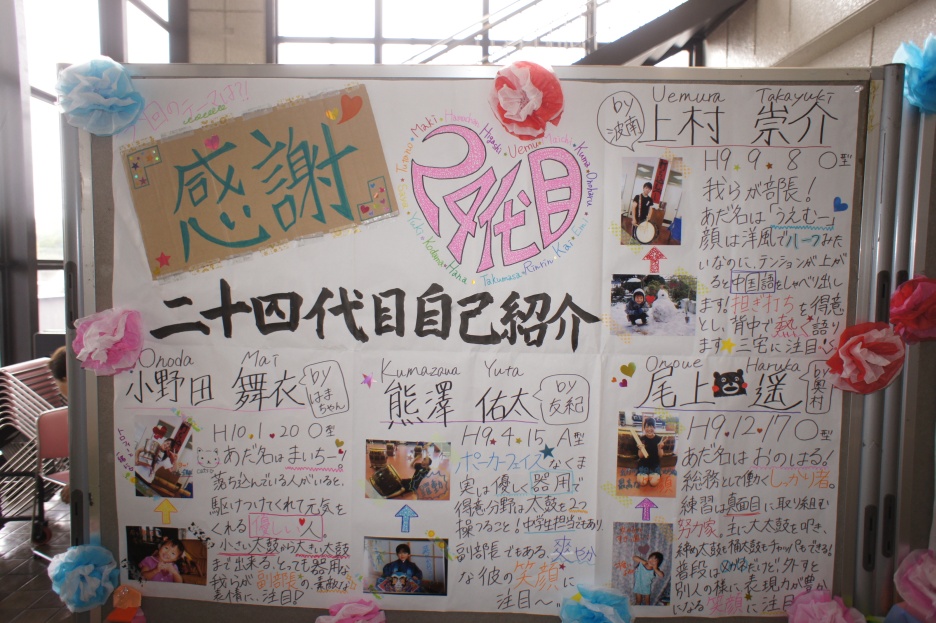 今回のテーマは?!
感謝
24代目
二十四代目自己紹介
Uemura Takayuki
by波南
上村 崇介
H9.9.8 O型
我らが部長!
あだ名は「うえむー」
顔は洋風でハーフみた
いなのに、テンションが上が
ると中国語をしゃべり出し
ます!担ぎ打ちを得意
とし、背中で熱く語り
ます★三宅に注目!
Onoda Mai
小野田 舞衣
byはまちゃん
H10.1.20 O型
あだ名はまいちー!
落ち込んでいる人がいると、
駆けつけてくれて元気を
くれる優しい人。
小さい太鼓から大きい太鼓
まで出来る、とっても器用な
我らが副部長の素敵な
表情に、注目♪
Kumazawa Yuta
熊澤 佑太
by友紀
H9.4.15 A型
ポーカーフェイスなくま
実は優しく器用で
得意分野は太鼓を2つ
操つること!中学担当でもあり
副部長でもある、爽やか
な彼の笑顔に
注目〜。
Onoue Haruka
尾上 遥
by奥村
H9.12.17 O型
あだ名はおのはる!
総務として働くしっかり者。
練習は真面目に取り組む
努力家。主に大太鼓を叩き、
締め太鼓も桶太鼓もチャッパもできる!
別人の様に表現力が豊か
になる笑顔に注目